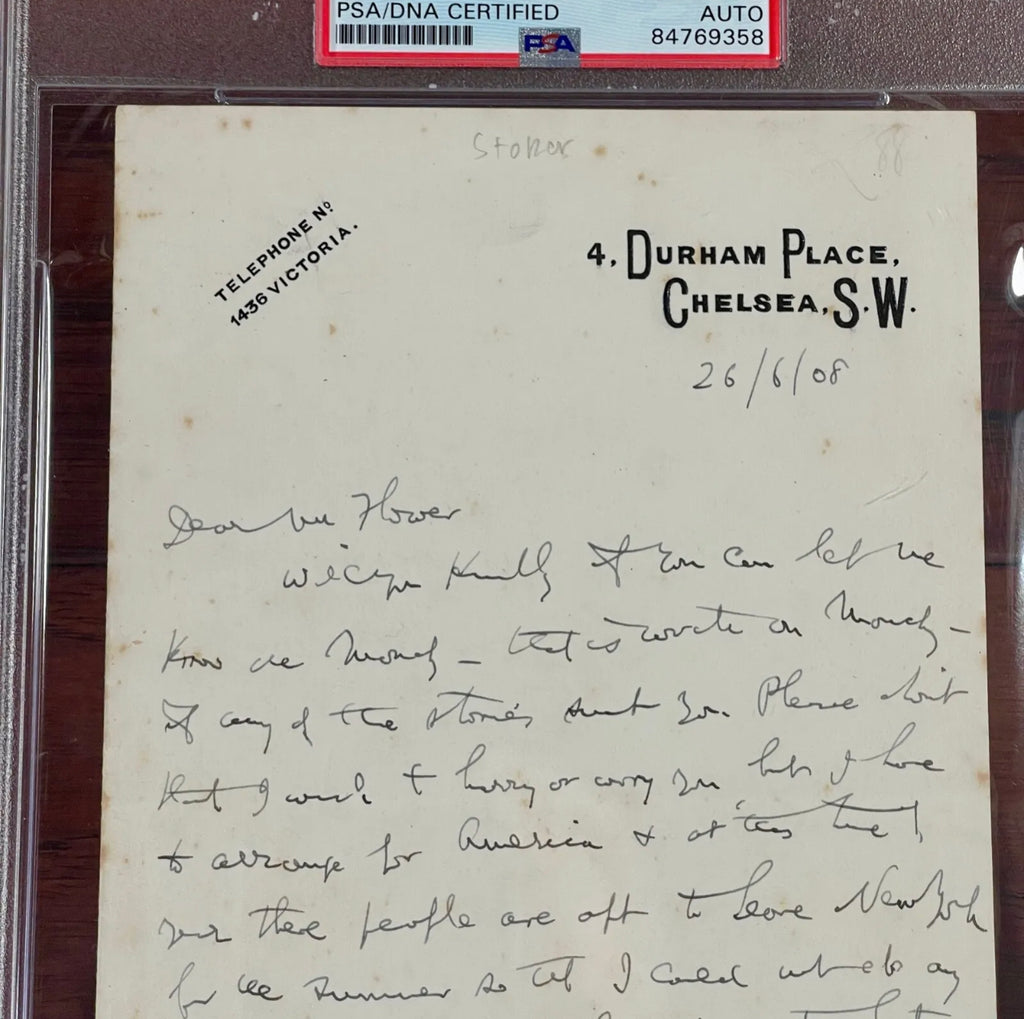 PSA/DNA CERTIFIED AUTO
PSA 84769358
Stoker 88
TELEPHONE Nº
1436 VICTORIA.
4, DURHAM PLACE,
CHELSEA, S.W.
26/6/08
Dear Mr Flower
Will you Kindly if you can let me
Know on Monday – that is write on Monday –
If any of the stories suit you. Please don't
think I wish to hurry or worry you but I have
to arrange for America & at this time of
year there people are apt to leave New York
for the summer so that I could not do any